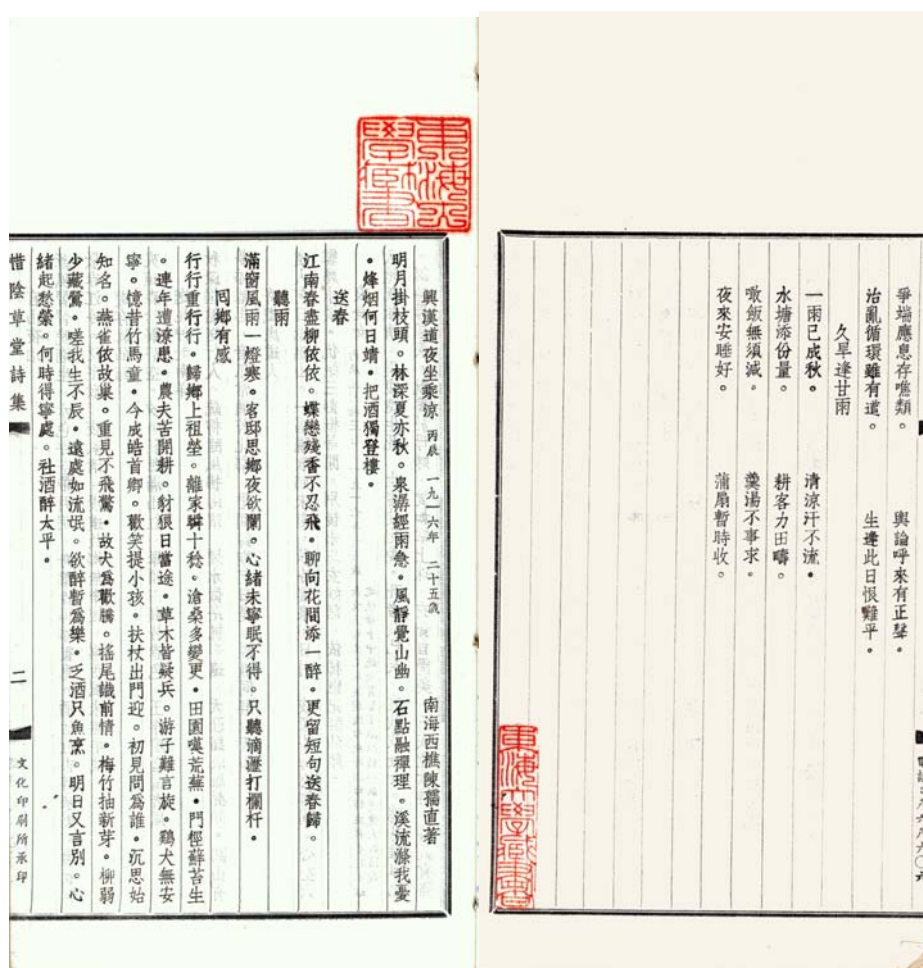 爭端應息存噍類。 輿論呼來有正聲。
治亂循環雖有道。 生逢此日恨難平。
久旱逢甘雨
一雨已成秋。 清涼汗不流。
水塘添份量。 耕客力田疇。
噉飯無須減。 羹湯不事求。
夜來安睡好。 蒲扇暫時收。
東海大學藏書
東海大學藏書
興漢道夜坐乘涼 丙辰 一九一六年 二十五歲 南海西樵陳孺直著
明月掛枝頭。林深夏亦秋。泉潺經雨急。風靜覺山幽。石點融禪理。溪流滌我憂
。烽烟何日靖。把酒獨登樓。
送春
江南春盡柳依依。蝶戀殘香不忍飛。聊向花間添一醉。更留短句送春歸。
聽雨
滿窗風雨一燈寒。客邸思鄉夜欲闌。心緒未寧眠不得。只聽滴瀝打欄杆。
囘鄉有感
行行重行行。歸鄉上祖塋。離家幾十稔。滄桑多變更。田園嘆荒蕪。門徑蘚苔生
。連年遭潦患。農夫苦開耕。豺狼日當途。草木皆疑兵。游子難言旋。鷄犬無安
寧。憶昔竹馬童。今成皓首卿。歡笑提小孩。扶杖出門迎。初見問為誰。沉思始
知名。燕雀依故巢。重見不飛驚。故犬為歡騰。搖尾識前情。梅竹抽新芽。柳弱
少藏鶯。嗟我生不辰。遠處如流氓。欲醉暫為樂。乏酒只魚烹。明日又言別。心
緒起愁縈。何時得寧處。社酒醉太平。
惜陰草堂詩集 二 文化印刷所承印